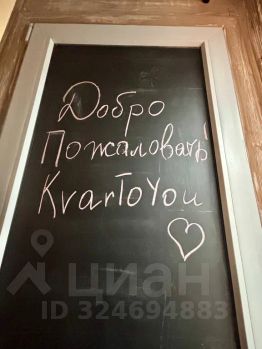 Добро
Пожаловать!
KvarToYou
циан
ID 324694883